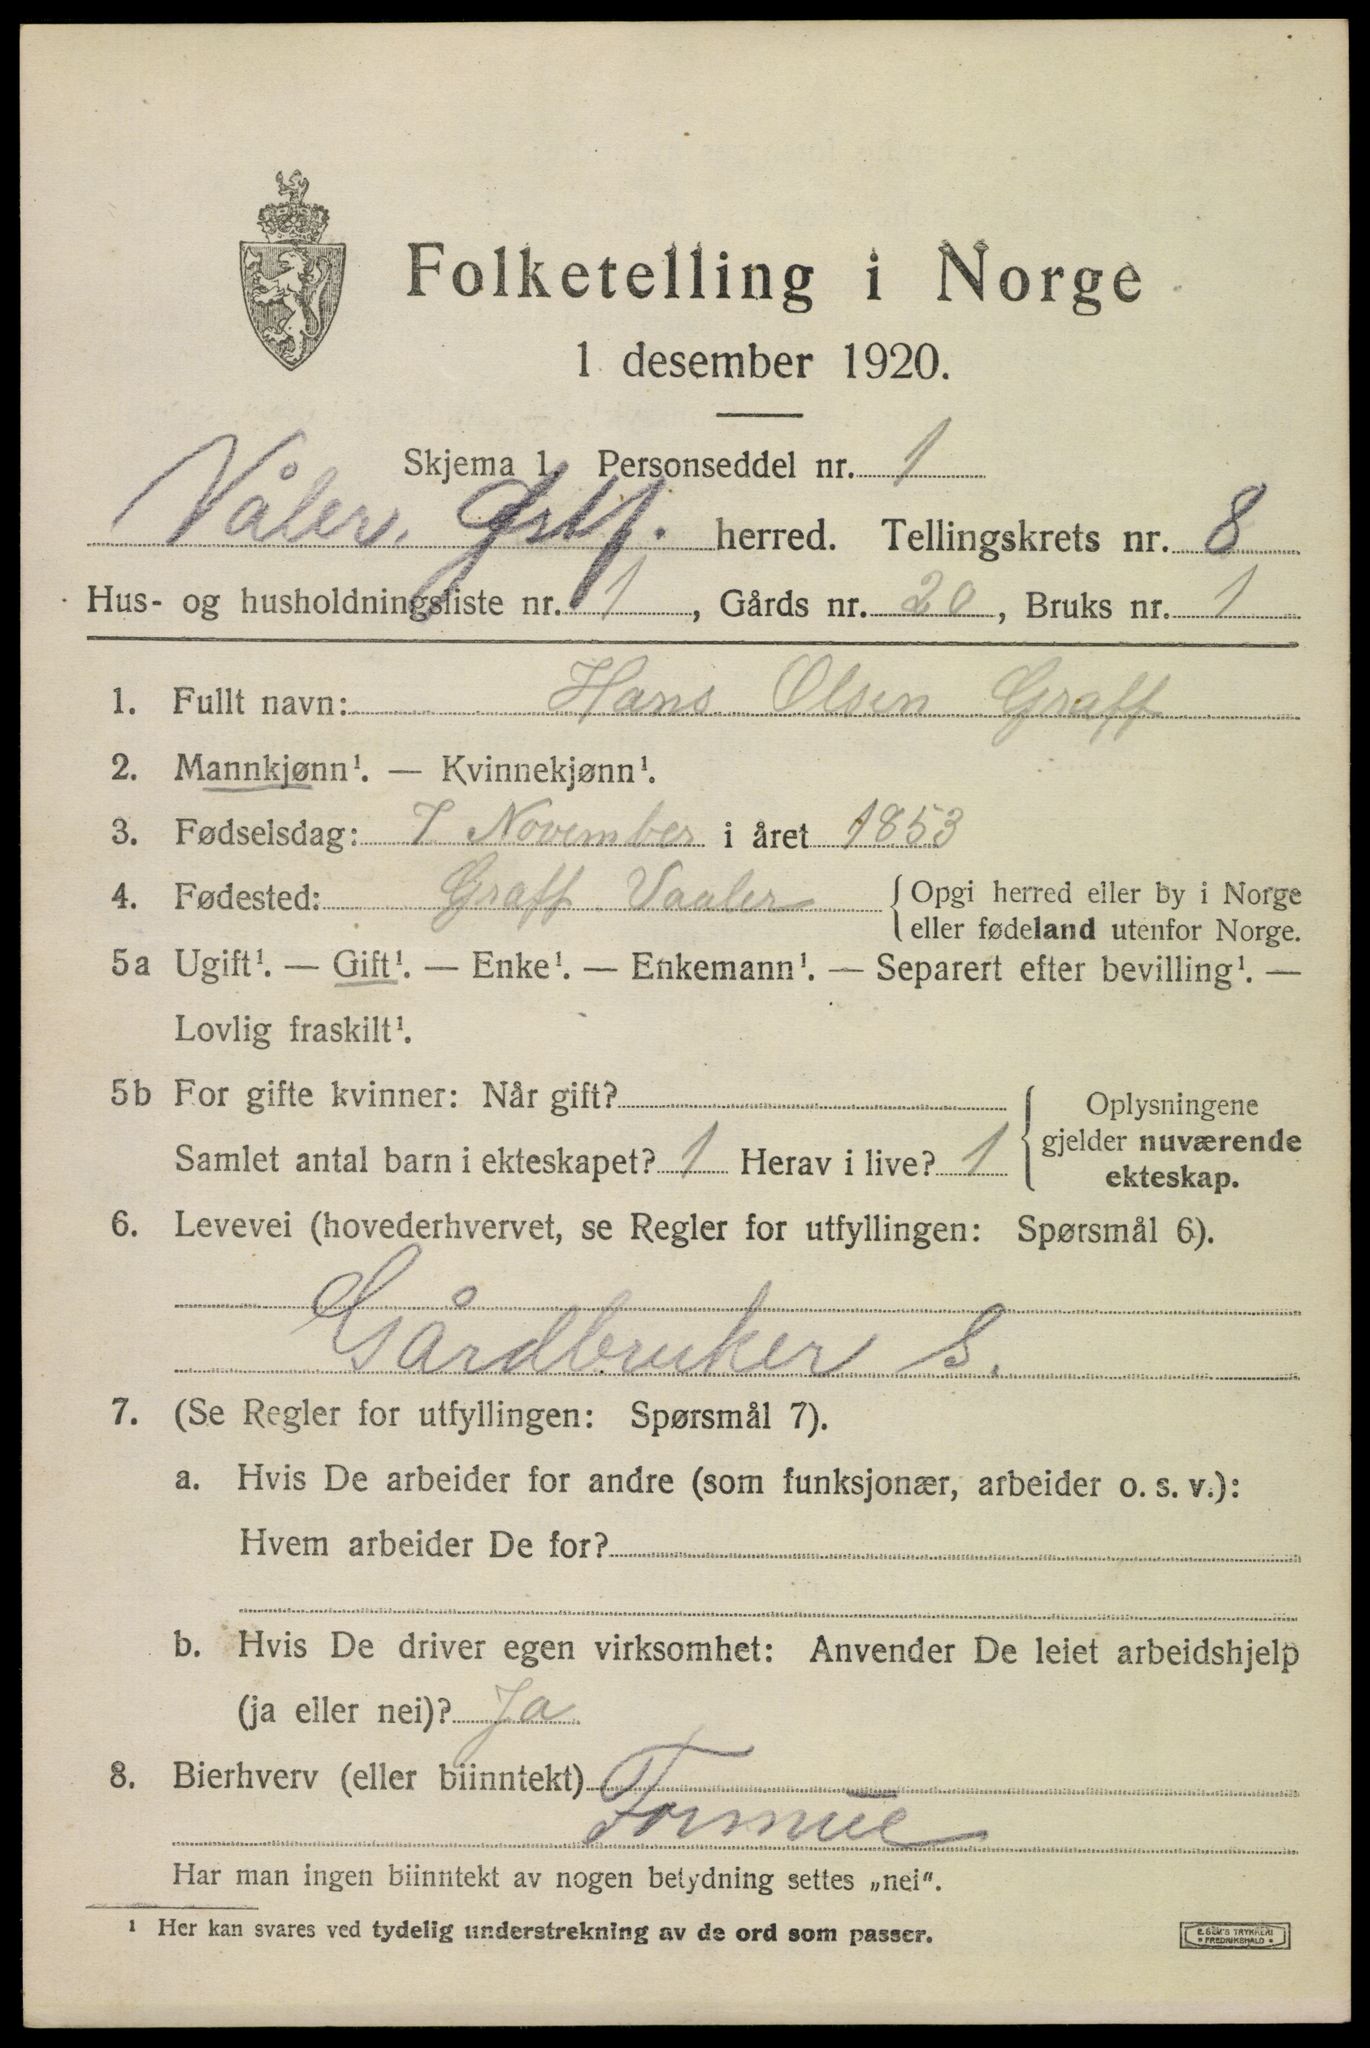 Folketelling i Norge
1 desember 1920.
Skjema 1. Personseddel nr. 1
Våler. Østf. herred. Tellingskrets nr. 8
Hus- og husholdningsliste nr. 1, Gårds nr. 20, Bruks nr. 1
1. Fullt navn: Hans Olsen Graff
2. Mannkjønn¹. — Kvinnekjønn¹.
3. Fødselsdag: 7 November i året 1853
4. Fødested: Graff Vaaler { Opgi herred eller by i Norge
eller fødeland utenfor Norge.
5a Ugift¹. — Gift¹. — Enke¹. — Enkemann¹. — Separert efter bevilling¹. —
Lovlig fraskilt¹.
5b For gifte kvinner: Når gift?
Samlet antal barn i ekteskapet? 1 Herav i live? 1
Oplysningene
gjelder nuværende
ekteskap.
6. Levevei (hovederhvervet, se Regler for utfyllingen: Spørsmål 6).
Gårdbruker S.
7. (Se Regler for utfyllingen: Spørsmål 7).
a. Hvis De arbeider for andre (som funksjonær, arbeider o. s. v.):
Hvem arbeider De for?
b. Hvis De driver egen virksomhet: Anvender De leiet arbeidshjelp
(ja eller nei)? Ja
8. Bierhverv (eller biinntekt)
Formue
Har man ingen biinntekt av nogen betydning settes „nei“.
¹ Her kan svares ved tydelig understrekning av de ord som passer.
E. SEM'S TRYKKERI
FREDRIKSHALD